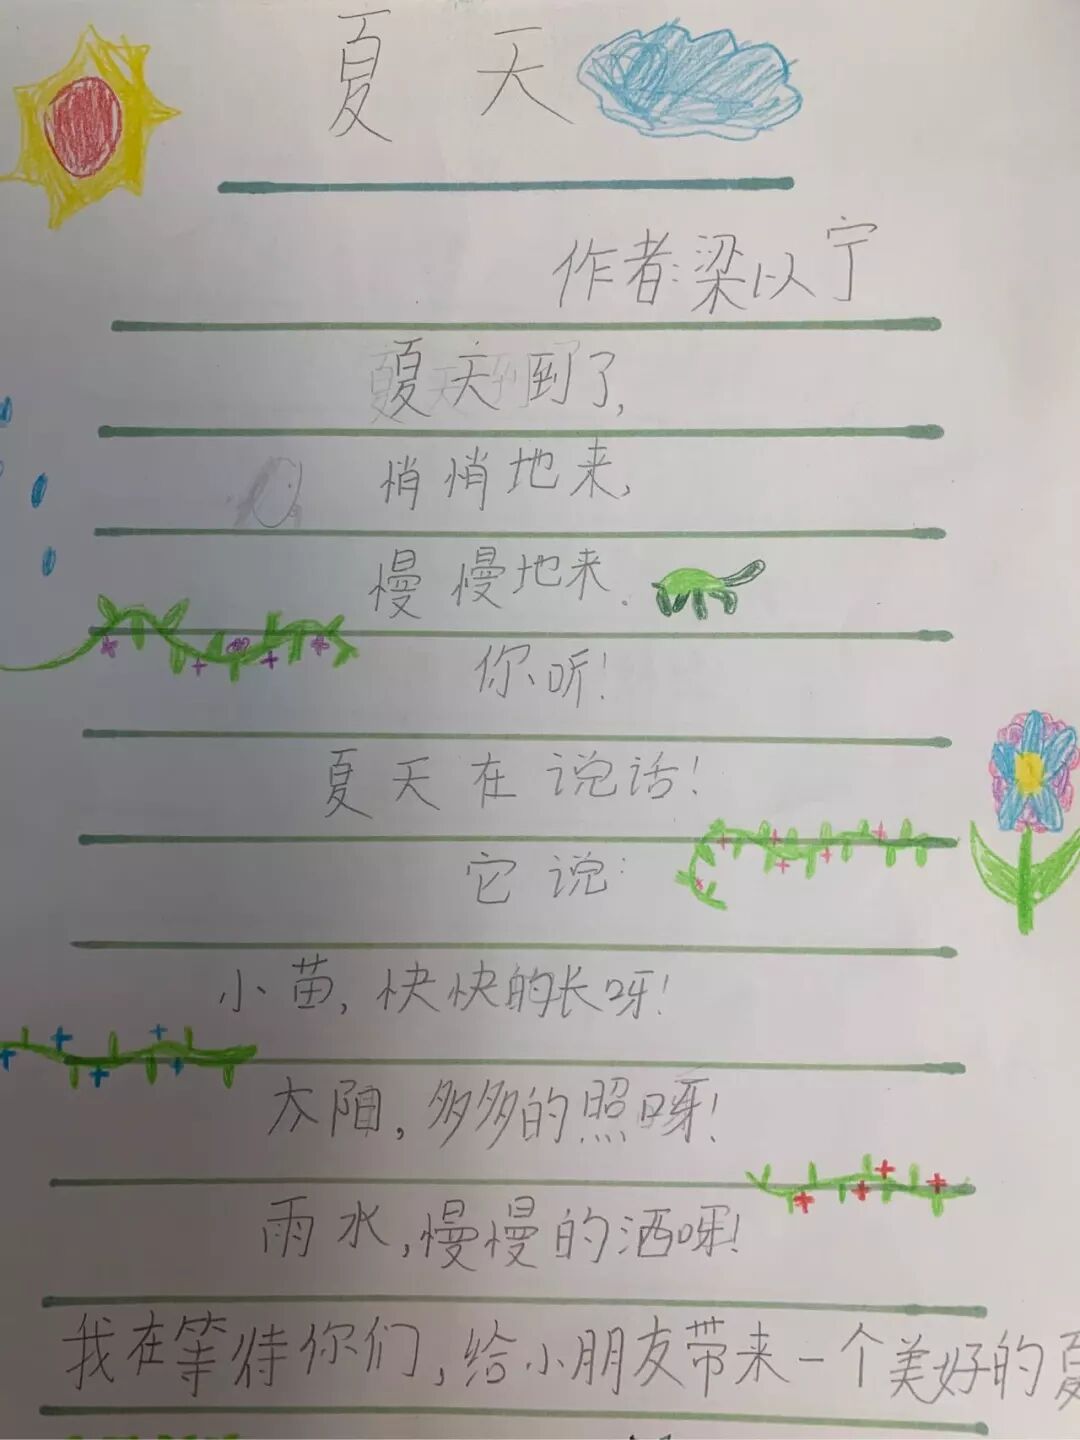 夏天
作者:梁以宁
夏天到了,
悄悄地来,
慢慢地来.
你听!
夏天在说话!
它说:
小苗,快快的长呀!
太阳,多多的照呀!
雨水,慢慢的洒呀!
我在等待你们,给小朋友带来一个美好的夏